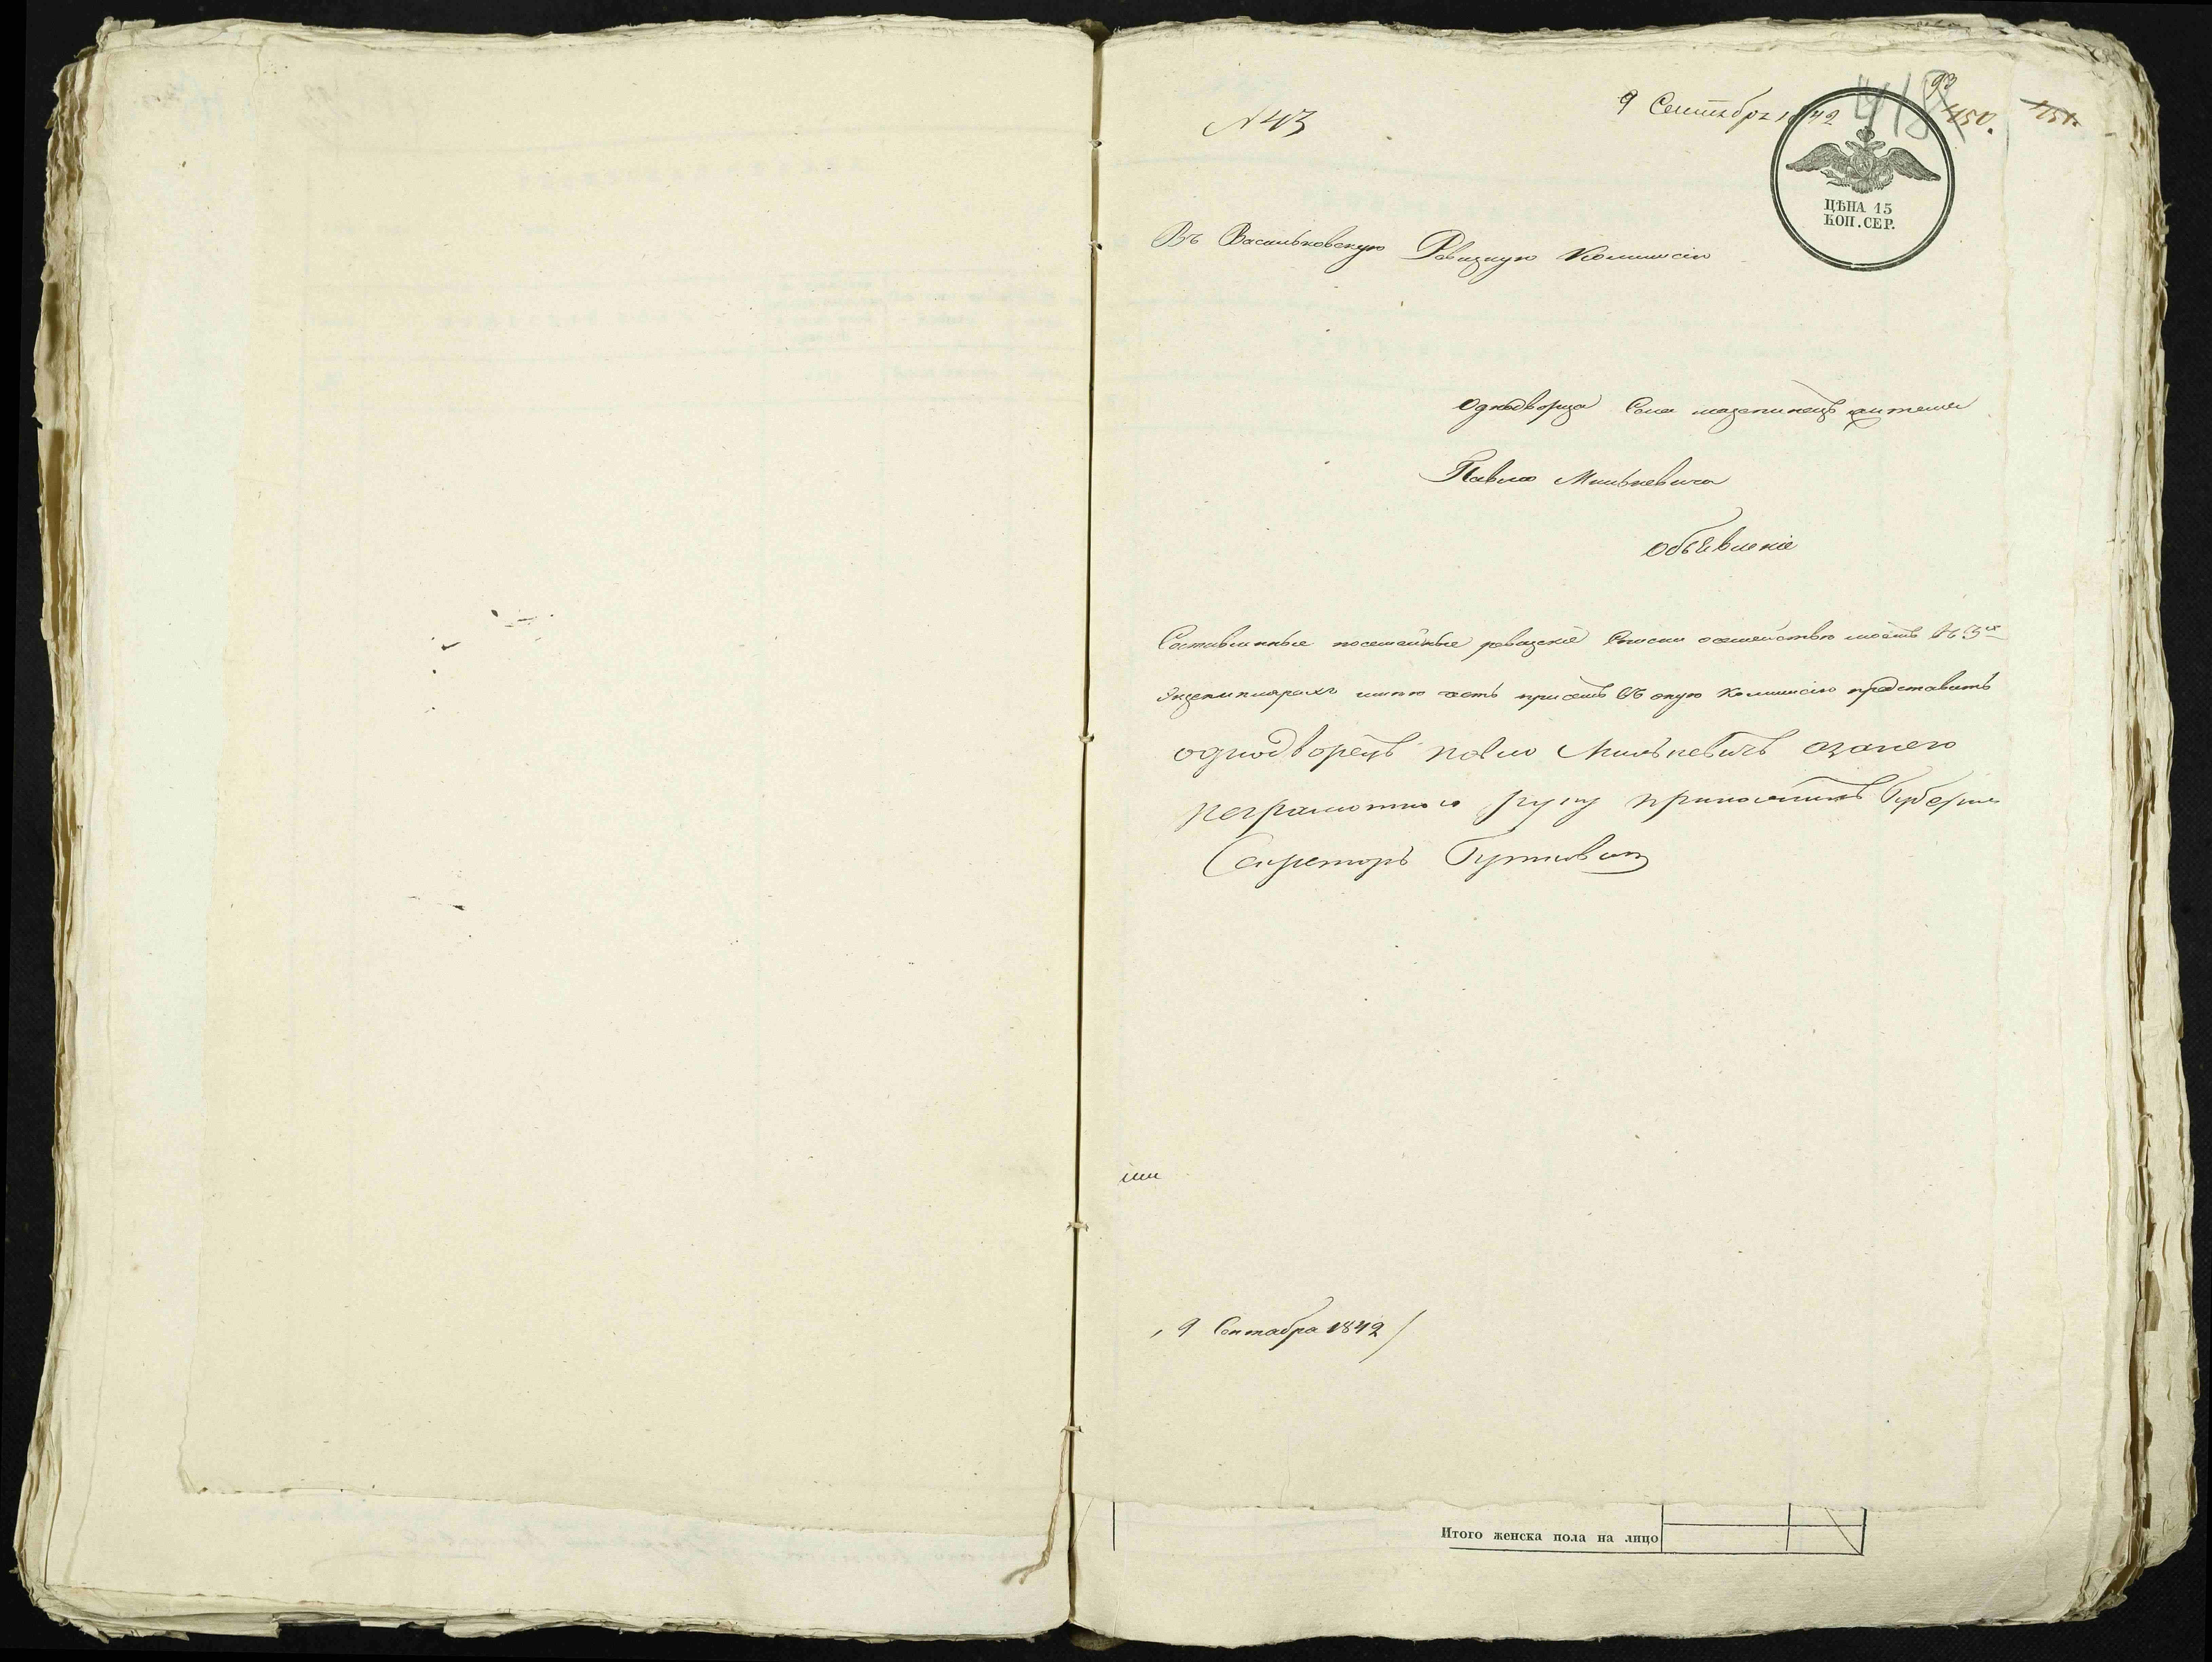 N 43
9 Сентября 1842
418
93
450.
451.
ЦѢНА 15
КОП. СЕР.
Въ Васильковскую Ревизкую Коммисію
Однодворца Села мазепинецъ жителя
Павла Мильневича
Объявленіе
Составленные посемейные ревизскіе Списки о семействѣ моемъ въ 3х
Экземплярахъ имѣю честь при семъ въ оную Коммисію представить
однодворецъ Павло Мильневичъ а за него
неграмотнаго руку приложилъ Губернс
Секретарь
9 Сентабра 1842
Итого женска пола на лицо